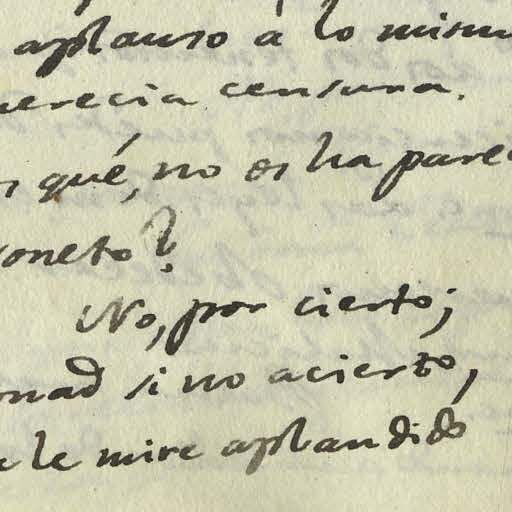 aplauso a lo mism
merecia censura.
s qué, no os ha pare
soneto?
No, por cierto;
onad si no acierto,
e le mire aplaudido